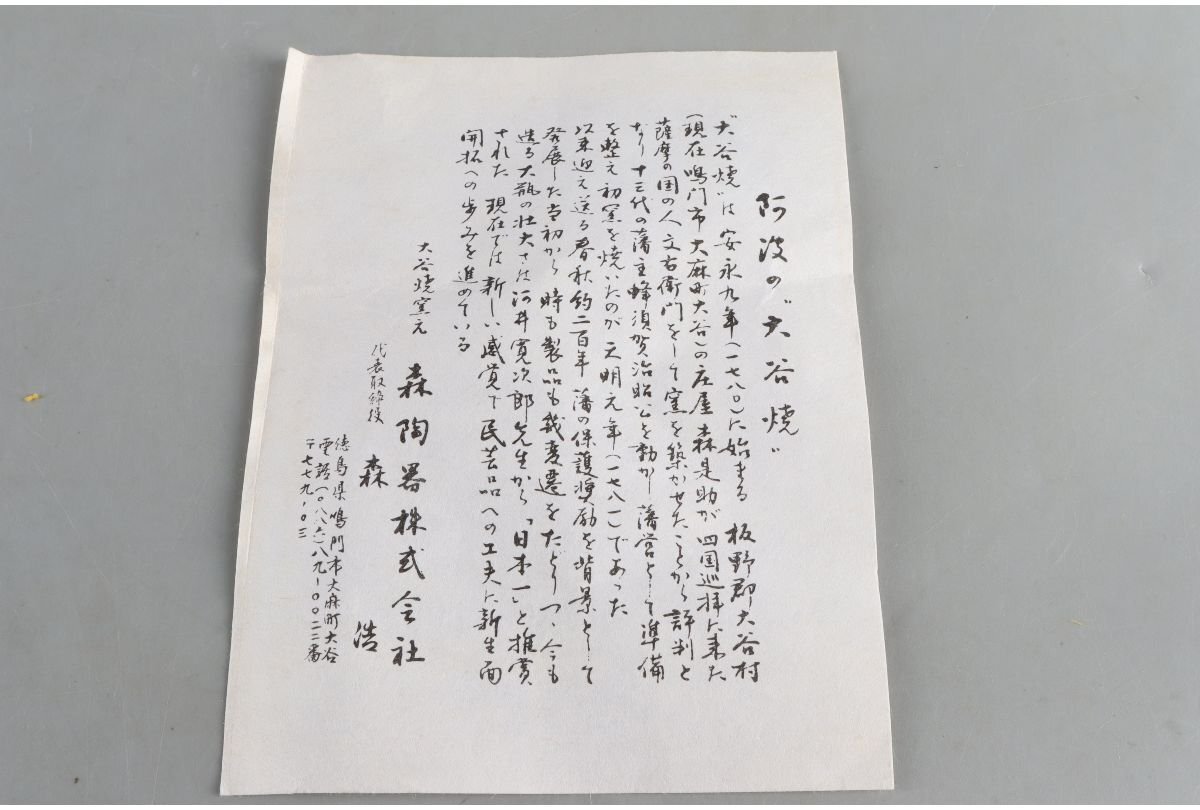 阿波の〝大谷焼〟
〝大谷焼〟は 安永九年(一七八〇)に始まる 板野郡大谷村
(現在鳴門市大麻町大谷)の庄屋 森是助が 四国巡拝に来た
薩摩の国の人 文右衛門をして窯を築かせたことから 評判と
なり 十三代の藩主 蜂須賀治昭公を動かし 藩営として準備
を整え 初窯を焼いたのが 天明元年(一七八一)であった
以来迎え送る春秋約二百年 藩の保護奨励を背景として
発展した当初から 時も製品も幾変遷をたどりつゝ今も
造る大瓶の壮大さは 河井寛次郎先生から「日本一」と推賞
された 現在では 新しい感覚で 民芸品への工夫に新生面
開拓への歩みを進めている
大谷焼窯元 森陶器株式会社
代表取締役 森 浩
徳島県鳴門市大麻町大谷
電話(〇八八六)八九-〇〇二二番
〒七七九-〇三